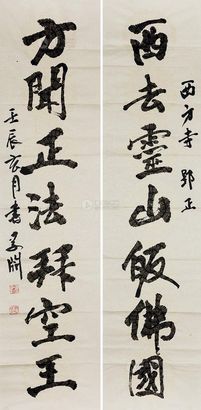 西方寺 郢正
西去靈山皈佛國
方聞正法拜空王
壬辰亥月書